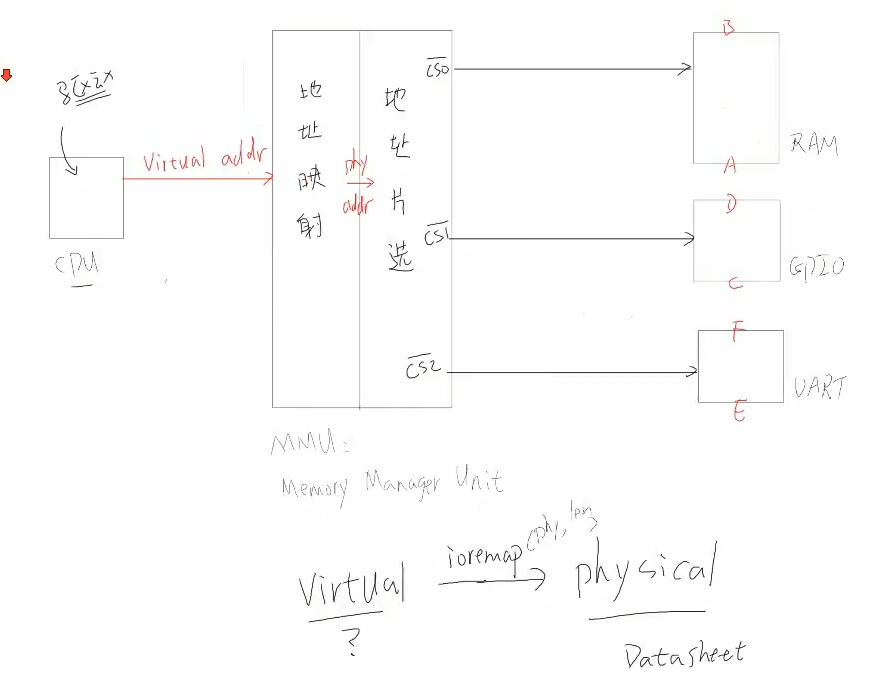 CPU
Virtual addr
地址映射
phy
addr
地址片选
CS0
CS1
CS2
B
A
RAM
D
C
GPIO
F
E
UART
MMU:
Memory Manager Unit
Virtual
?
ioremap(phy, len)
physical
Datasheet